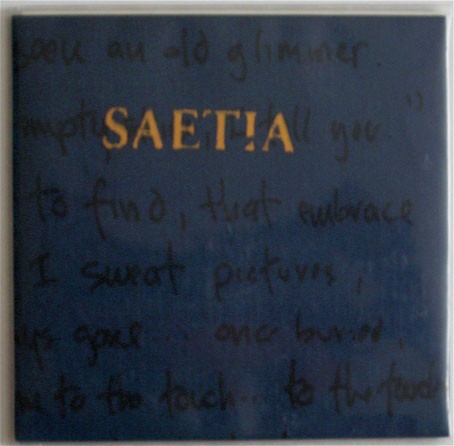 an old glimmer.
SAET!A
you."
to find, that embrace
I sweat pictures,
gone... once buried,
to the touch... to the touch